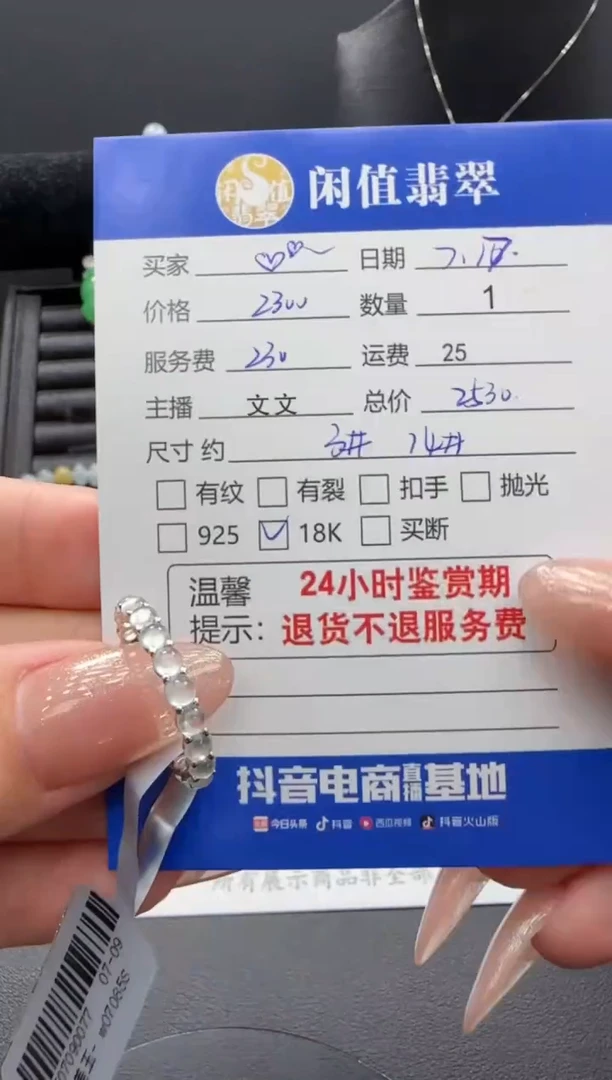 闲值翡翠
买家 日期 7.17.
价格 2300 数量 1
服务费 230 运费 25
主播 文文 总价 2530.
尺寸约 14#
有纹 有裂 扣手 抛光
925 18K 买断
温馨 24小时鉴赏期
提示: 退货不退服务费
抖音电商直播基地
今日头条 抖音 西瓜视频 抖音火山版
所有展示商品非全部
07-09